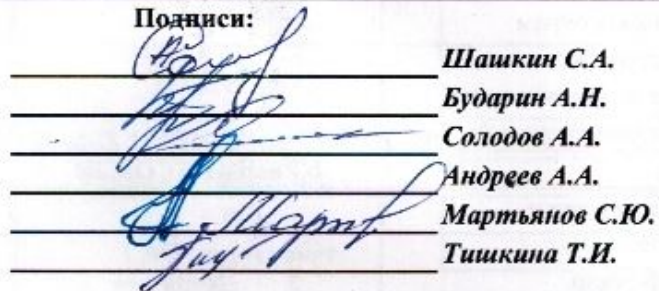 Подписи:
Шашкин С.А.
Бударин А.Н.
Солодов А.А.
Андреев А.А.
Мартьянов С.Ю.
Тишкина Т.И.